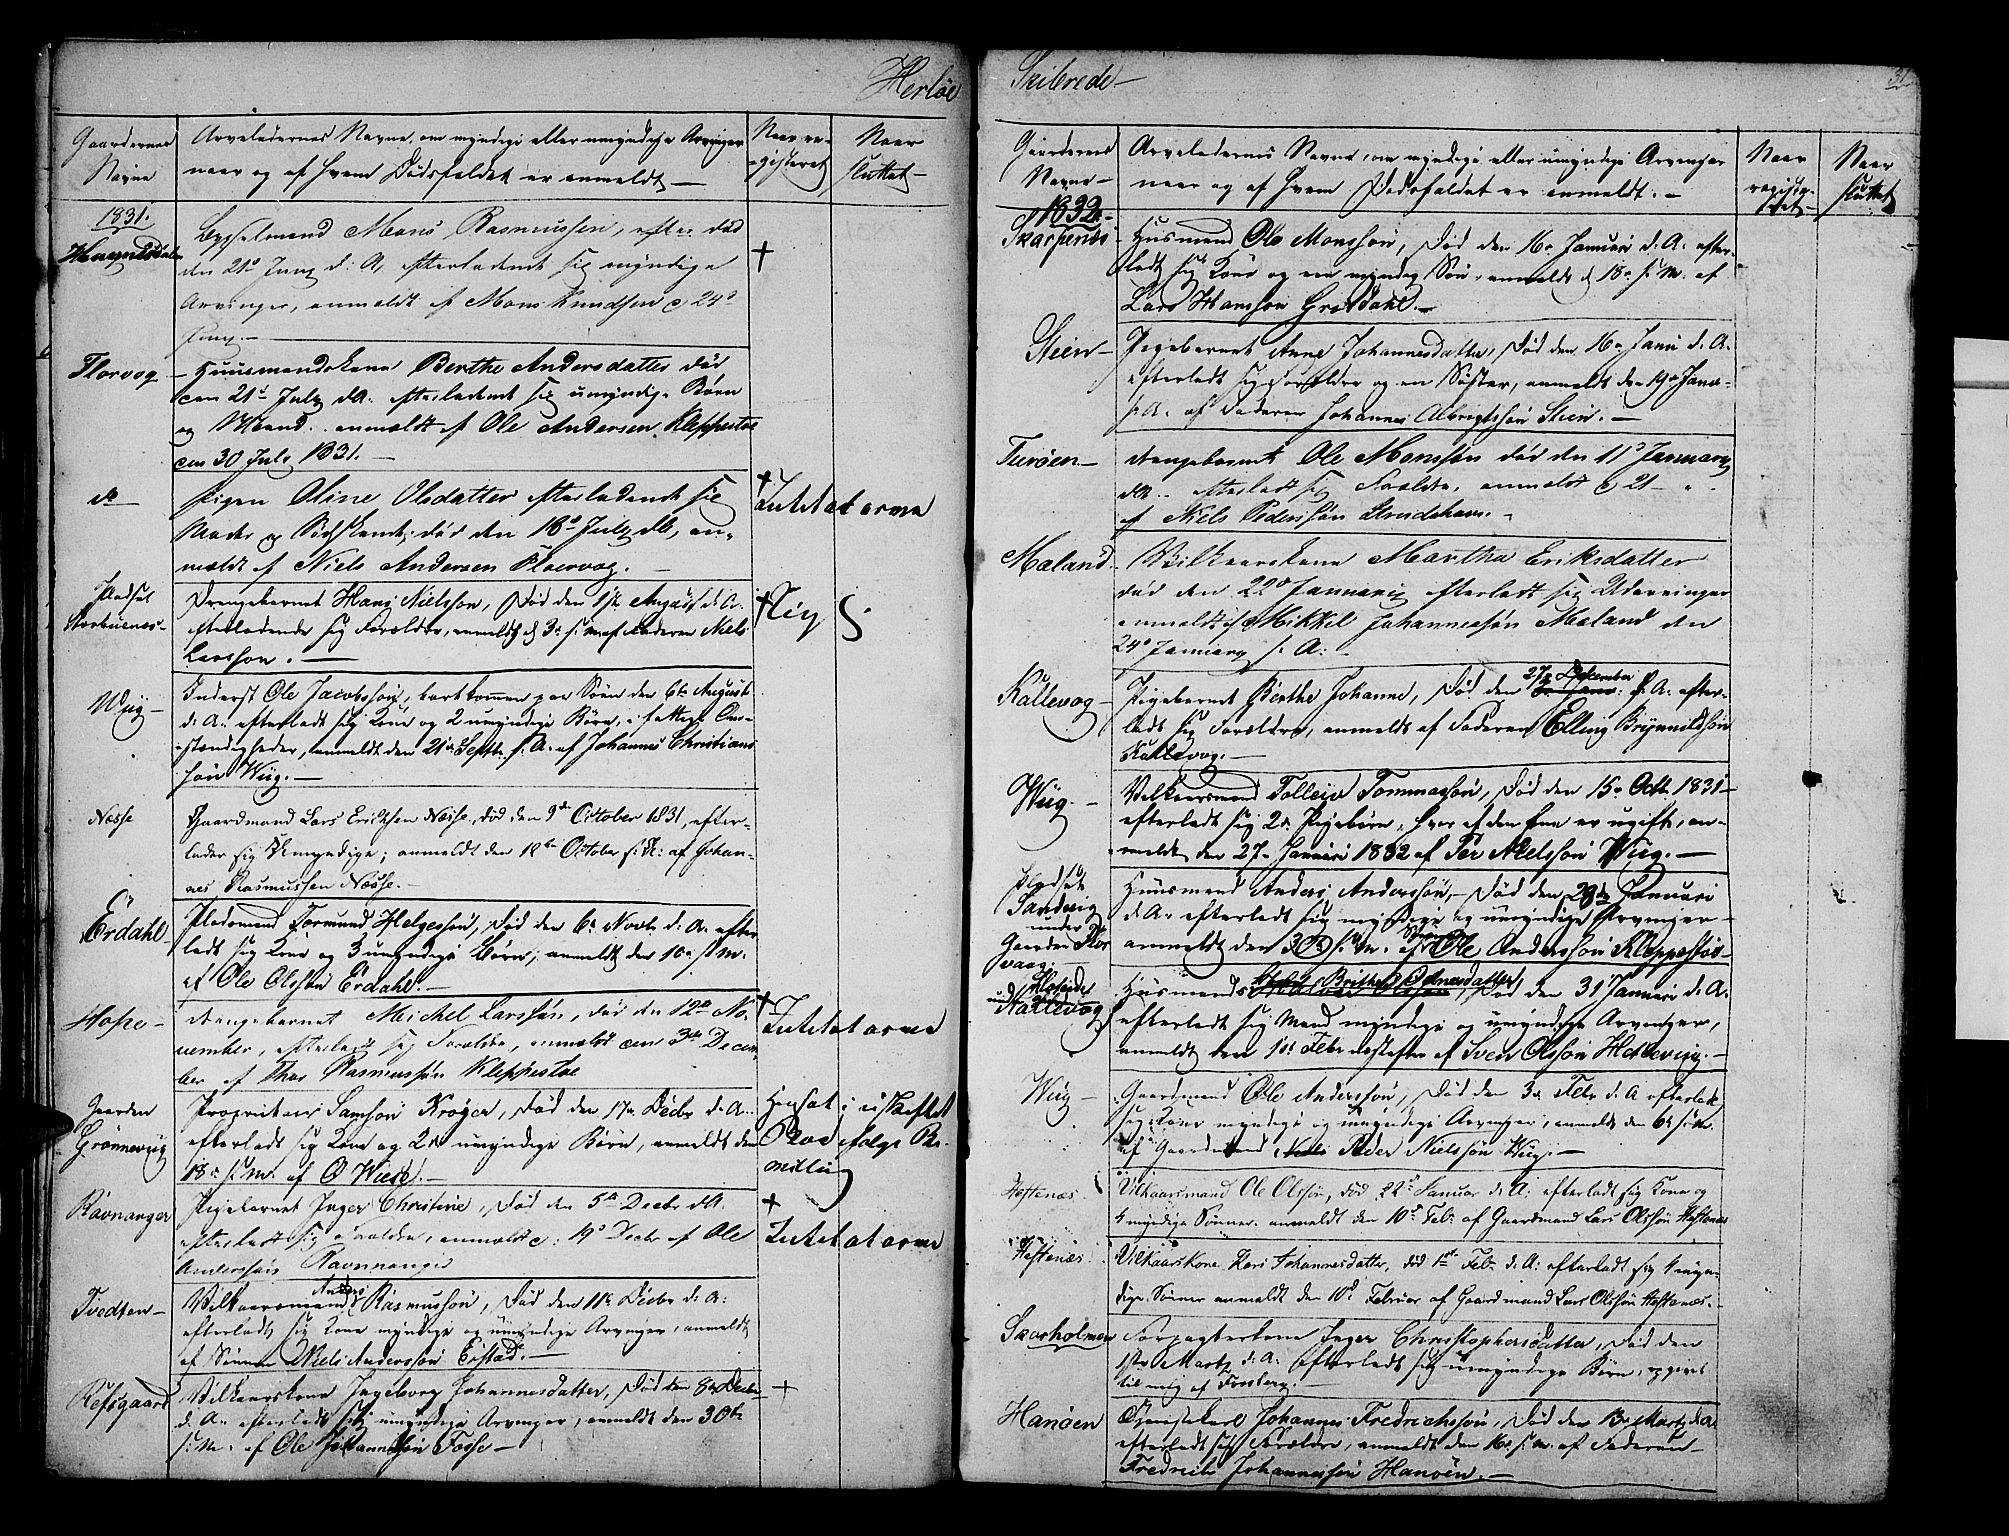 Herlöe
Gaardenes Navne
Arveladernes Navne, om myndige eller umyndige Arvinger
naar og af hvem Dödsfaldet er anmeldt —
Naar re-
gistreret
Naar
sluttet —
1831.
Lysselmand Mons Rasmussen, efter död
den 21de Juny d. A. efterladende sig myndige
Arvinger, anmeldt af Mons Knudsen d 24d
Juny. —
Florvog —
Huusmandskone Berthe Andersdatter död
den 21d July d A. efterladende sig umyndige Börn
og Mand. anmeldt af Ole Andersen Kleppestöe
den 30 July 1831. —
do —
Pigen Oline Olsdatter efterladende sig
Moder og Södskende, död den 18d July d A, an-
mældt af Niels Andersen Floervog. —
Intet at arve
Pladset
Drengebarnet Hans Nielssön, Död den 1ste August d. A.
efterladende sig Forældre, anmeldt d 3de s. M. af Faderen Niels
Larsson. —
Wiig —
Inderst Ole Jacobssön, bortkommen paa Söen den 6te August
d. A. efterladt sig Kone og 2 umyndige Börn, i fattige Om-
stændigheder, anmeldt den 21de Septbr. s. A. af Johannes Christians
sön Wiig. —
Nesse
Gaardmand Lars Ericksen Nesse, död den 9de October 1831, efter-
lader sig Umyndige; anmeldt den 12te October s. A: af Johan-
nes Rasmussen Nesse. —
Erdahl —
Pladsmand Tormund Helgessön, Död den 6te Novbr d. A. efter
ladt sig Kone og 3 umyndige Börn, anmeldt den 10de s. M.
af Ole Olssön Erdahl. —
Hope —
Drengebarnet Michel Larssön, död den 12te No-
vember, efterladt sig Forældre, anmeldt den 3de Decem-
ber af Thor Rasmussön Kleppestöe
Intet at arve
Gaarden
Grönnevig
Proprietair Samson Kröger, Död den 17de Decbr d. A.
efterladt sig Kone og 2de umyndige Börn, anmeldt den
18de s. M. af O Wiese. —
Hensat i uskiftet
Boe ifølge Be-
villing
Ravnanger
Pigebarnet Inger Christine, Död den 5te Decbr d A.
efterladt sig Forældre, anmeldt d: 19d Decbr af Ole
Anderssöns Ravnnanger
Intet at arve
Tvedten —
Vilkaarsmand Anders Rasmussön, Död den 11te Decbr d. A:
efterladt sig Kone myndige og umyndige Arvinger, anmeldt
af Sönnen Niels Anderssön Eistad. —
Refsgaard
Vilkaarskone Ingeborg Johannesdatter, Död den 8de Decbr
d. A. efterladt sig umyndige Arvinger, anmeldt den 30te
s. M. af Ole Johannessön Fosse —
Skibrede —
31
Gaardenes
Navne —
Arveladernes Navne, om myndige eller umyndige Arvinger
naar og af hvem Dödsfaldet er anmeldt. —
Naar
registre-
ret —
Naar
sluttet
1832 —
Skarpenes
Huusmand Ole Monssön, Död den 16de Januari d. A. efter-
ladt sig Kone og een myndig Sön, anmeldt d 18de s. M. af
Lars Hanssön Grötdahl. —
Stein —
Pigebarnet Anne Johannesdatter, Död den 16de Janu d. A.
efterladt sig Forældre og en Söster, anmeldt den 19de Janu-
s. A. af Faderen Johannes Albregtssön Stein. —
Turöen —
Drengebarnet Ole Monssön död den 11d January
d A. — efterladt sig Forældre, anmeldt d 21 — " —
af Niels Pederssön
Mæland —
Vilkaarskone Martha Eriksdatter
död den 22d January efterladt sig Udarvinger
anmeldt af Mikkel Johannessön Mæland den
24d January s. A: —
Kallevog —
Pigebarnet Berthe Johanne, Död den 27de December s. A. efter-
ladt sig Forældre, anmeldt af Faderen Elling Brynnildsön
Kallevog. —
Wiig. —
Vilkaarsmand Tolleiv Tommassön, Död den 15de Octbr 1831 —
efterladt sig 2de Pigebörn, hvoraf den Ene er ugift, an-
meldt den 27de Januari 1832 af Per Nielssön Wiig. —
Pladset
Sandvig
under
Gaarden Flor
vaag.
Huusmand Anders Anderssön, — Död den 28de Januari
d. A. efterladt sig myndige og umyndige Arvinger —
anmeldt den 30te s. M. af Sönnen Ole Anderssön Kleppestöe —
Kallevog
Huusmands Brithe Colnesdatter, Död den 31 Januari d. A.
efterladt sig Mand myndige og umyndige Arvinger,
anmeldt den 1ste Febr næstefter af Sven Olssön Hetlevig. —
Wiig —
Gaardmand Ole Anderssön, Död den 3de Febr. d. A efterladt
sig Kone myndige og umyndige Arvinger, anmeldt den 6te s. M.
af Gaardmand Peder Nielssön Wiig. —
Heftenæs.
Vilkaarsmand Ole Olssön, död 22de Januar d. A: efterladt sig Kone og
4 myndige Sönner. anmeldt den 10de Feb: af Gaardmand Lars Olssön Heftenæs
Heftenæs
Vilkaarskone Kari Johannesdatter, död 1ste Feb. d. A: efterladt sig 4 myn-
dige Sönner anmeldt den 10de Februar af Gaardmand Lars Olssön Heftenes. —
Skarholmen
Forpagterkone Inger Christophersdatter, Död den
1ste Martz d. A: efterladt sig umyndige Börn, opgivet
til mig af Forsberg. —
Hanöen
Tjenestekarl Johannes Fredrichssön, Död den 13de Martz d. A.
efterladt sig Forældre, anmeldt den 16de s. M. af Faderen —
Fredrich Johannessön Hanöen. —